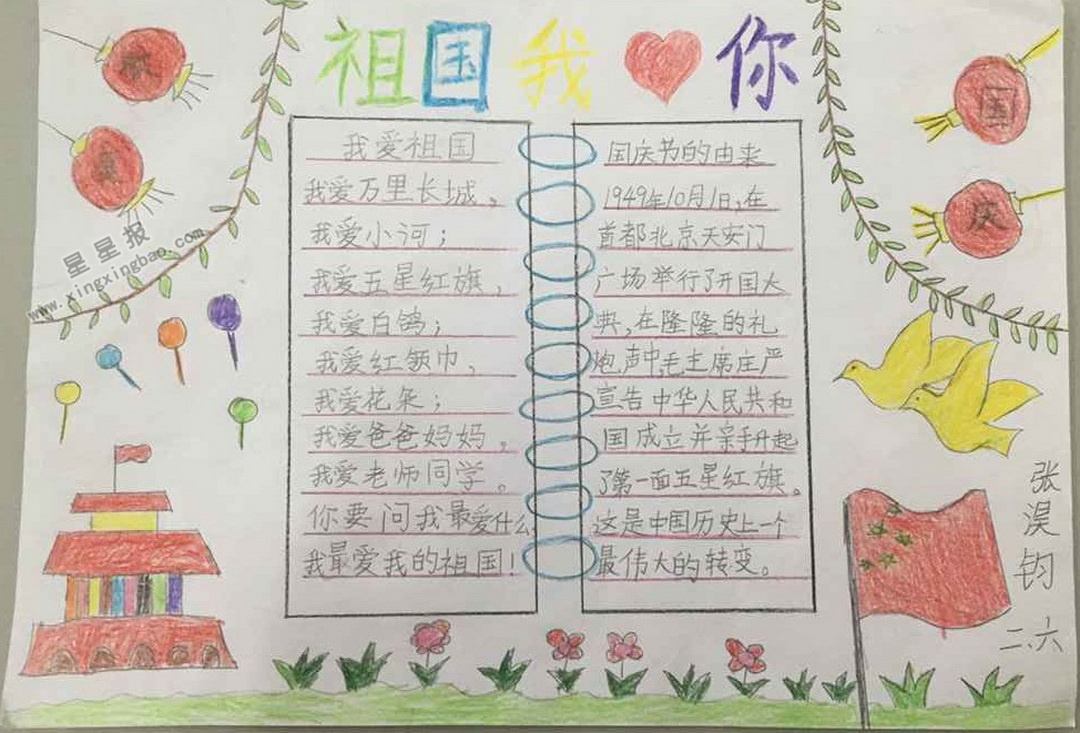 祖国我你
我爱祖国
我爱万里长城,
我爱小河;
我爱五星红旗,
我爱白鸽;
我爱红领巾,
我爱花朵;
我爱爸爸妈妈,
我爱老师同学。
你要问我最爱什么
我最爱我的祖国!
国庆节的由来
1949年10月1日,在
首都北京天安门
广场举行了开国大
典,在隆隆的礼
炮声中,毛主席庄严
宣告中华人民共和
国成立并亲手升起
了第一面五星红旗。
这是中国历史上一个
最伟大的转变。
国
庆
庆
张
淏
钧
二、六
星星报
www.xingxingbao.com